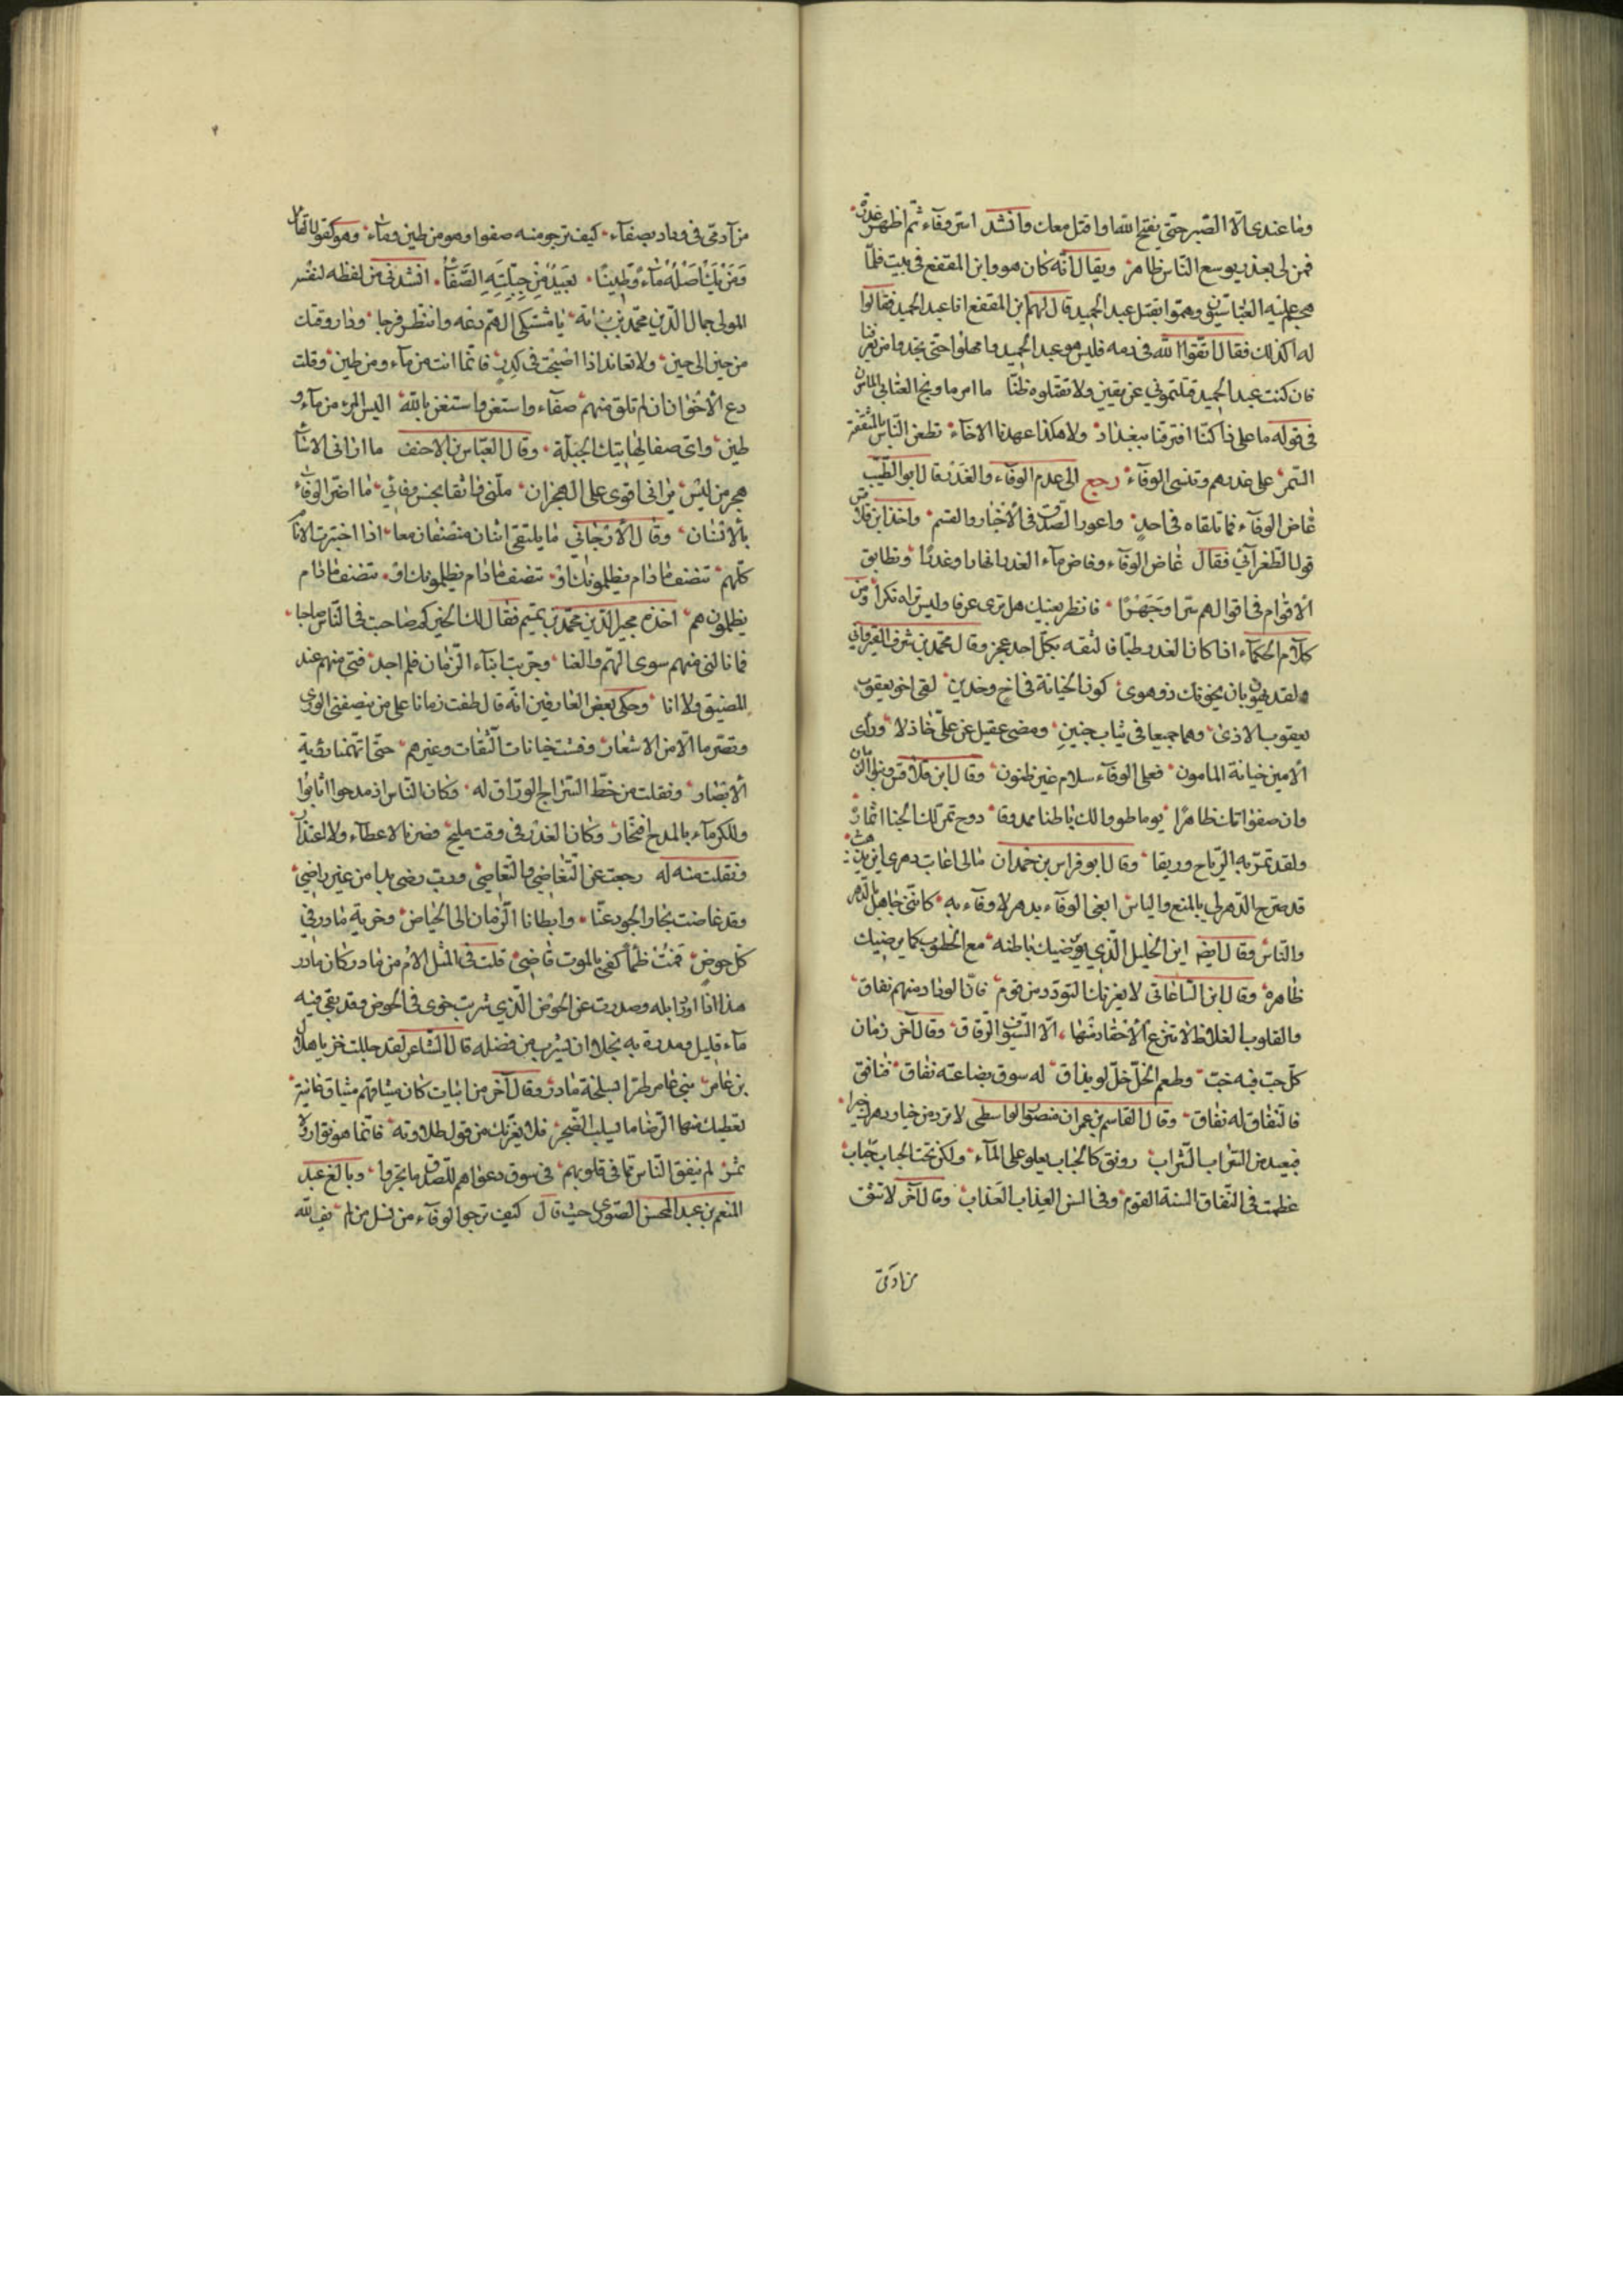 وما عندى الّا الصّبر حتى يفتح الله او اقتل معك وانشد اسرّ وفآء ثمّ اظهر غدرة
فمن لى بعذر يوسع النّاس ظاهره ويقال انّه كان هو وابن المقفع فى بيت فلمّا
هجم عليه العبّاسيّون وهمّوا بقتل عبد الحميد قال لهم ابن المقفع انا عبد الحميد فقالوا
له اكذلك فقال اتقوا الله فى دمه فليس هو عبد الحميد وامهلوا حتى
فان كنت عبد الحميد قتلتمونى عن يقين ولا تقتلوه ظنّا
فى قوله ما على ذا كنّا افترقنا ببغداد ولا هكذا عهدنا الاخآء تطعن النّاس بالمثقفة
السّمر على غدرهم وتنسى الوفآء رجع الى عدم الوفآء والغدر قال ابو الطّيّب
غاض الوفآء فما تلقاه فى احد واعوز الصّدق فى الأخبار والقسم واخذ ابن قلاقس
قول الطغرآئى فقال غاض الوفآء وفاض مآء الغدر انهارا وغدرًا وتطابق
الأقوام فى اقوالهم سرّا وجهرًا فانظر بعينك هل ترى عرفا وليس تراه نكرا ومن
كلام الحكمآء اذا كان الغدر طبّا فالثقه بكلّ احد عجز وقال محمّد بن شرف القيروانى
ولقد يهون بان يخونك ذو هوى كون الخيانة فى اخ وخدين لقى اخو يعقوب
يعقوب الاذى وهما جميعا فى ثياب جنين ومضى عقيل عن علىّ خاذلا ورأى
الأمين خيانة المامون فعلى الوفآء سلام غير ظنون وقال ابن قلاقس وبنو الزمان
وان صفوا لك ظاهرا يوما طووا لك باطنا ممذوقا دوح تمرّ لك الجنا اثماره
ولقد تمرّ به الرّياح وريقا وقال ابو فراس بن حمدان مالى اعاتب دهرى اين يذهب
قد صرح الدّهر لى بالمنع والياس ابغى الوفآء بدهر لا وفآء به كانّنى جاهل بالدّهر
والنّاس وقال ايضا اين الخليل الّذى يرضيك باطنه مع الخطوب كما يرضيك
ظاهره وقال ابن السّاعاتى لا يغرنك التودّد من قوم فانّ الوداد منهم نفاق
والقلوب الغلاظ لا تنزع الأحقاد منها الّا السّيوف الرّقاق وقال آخر زمان
كلّ حبّ فيه خبّ وطعم الخلّ خلّ لو يذاق له سوق بضاعته نفاق فنافق
فالنّفاق له نفاق وقال القاسم بن عمران منصور الواسطى لا ترد من خيار دهرك خيرا
فبعيد من السّراب الشّراب رونق كالحباب يعلو على المآء ولكن تحت الحباب حباب
عظمت فى النّفاق السنة القوم وفى الالسن العذاب العذاب وقال آخر لا تثق
من آدمىّ
من آدمىّ فى وداد بصفآء كيف ترجو منه صفوا وهو من طين ومآء وهو كقول القائل
ومن يك اصله مآء وطينا بعيد من جبلّته الصّفآء انشدنى من لفظه لنفسه
المولى جمال الدّين محمّد بن نباته يا مشتكى الهمّ دعه وانتظر فرجا ودار وقتك
من حين الى حين ولا تعاند اذا اصبحت فى كدر فانّما انت من مآء ومن طين وقلت
دع الأخوان ان لم تلق منهم صفآء واستعن واستغن بالله اليس المرء من مآء و
طين واىّ صفا لهاتيك الجبلّة وقال العبّاس بن الاحنف
هجر من ليس يرانى اقوى على الهجران ملّنى واثقا بحسن وفائى ما اضرّ الوفآء
بالانسان وقال الأرّجانى ما يلتقى اثنان منصفان معا اذا اختبرت الأنام
كلّهم تنصف ما دام يظلمونك او تنصف ما دام يظلمونك او تنصف ما دام
يظلمون هم اخذه مجير الدّين محمّد بن تميم فقال لك الخير كم صاحبت فى النّاس صاحبا
فما نالنى منهم سوى الهمّ والعنا وجرّبت ابنآء الزّمان فلم اجد فتى منهم عند
المضيق ولا انا وحكى بعض العارفين انّه قال طفت زمانا على من ينصفنى الورى
الأبصار ونقلت من خطّ السّراج الورّاق له وكان النّاس اذ مدحوا اثابوا
وللكرمآء بالمدح افتخار وكان العذر فى وقت مليح فصرنا لا عطآء ولا اعتذار
ونقلت منه له رجعت عن التّغاضى والتّعاصى ورب رضى بدا من غير راضى
وقد غاضت بحار الجود عنّا وابطانا الزّمان الى الحياض وخرية مادر فى
كلّ حوض فمت ظمأ كفى بالموت قاضى قلت فى المثل الأم من مادر وكان مادر
هذا اذا اورد ابله وصدرت عن الحوض الّذى شربت خرى فى الحوض وقد بقى فيه
مآء قليل ومدره به بخلا ان يشرب من فضله قال الشّاعر لقد جللت خزيا هلال
بن عامر بنى عامر طرّا بسلحة مادر وقال آخر من ابيات كان ميثاقهم ميثاق غانية
تعطيك منها الرّضا ما يسلب الضّجر فلا يغرّنك من قول طلاوته فانّما هو نوّار ولا
ثمر لم ينفق النّاس ممّا فى قلوبهم فى سوق دعواهم للصّدق ما تجروا وبالغ عبد
المنعم بن عبد المحسن الصّورى حيث قال كيف ترجو الوفآء من نسل من لم يف لله